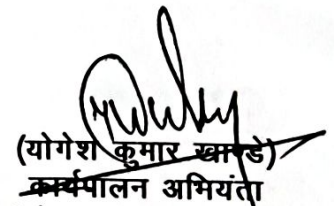 (योगेश कुमार खाण्डे)
कार्यपालन अभियंता